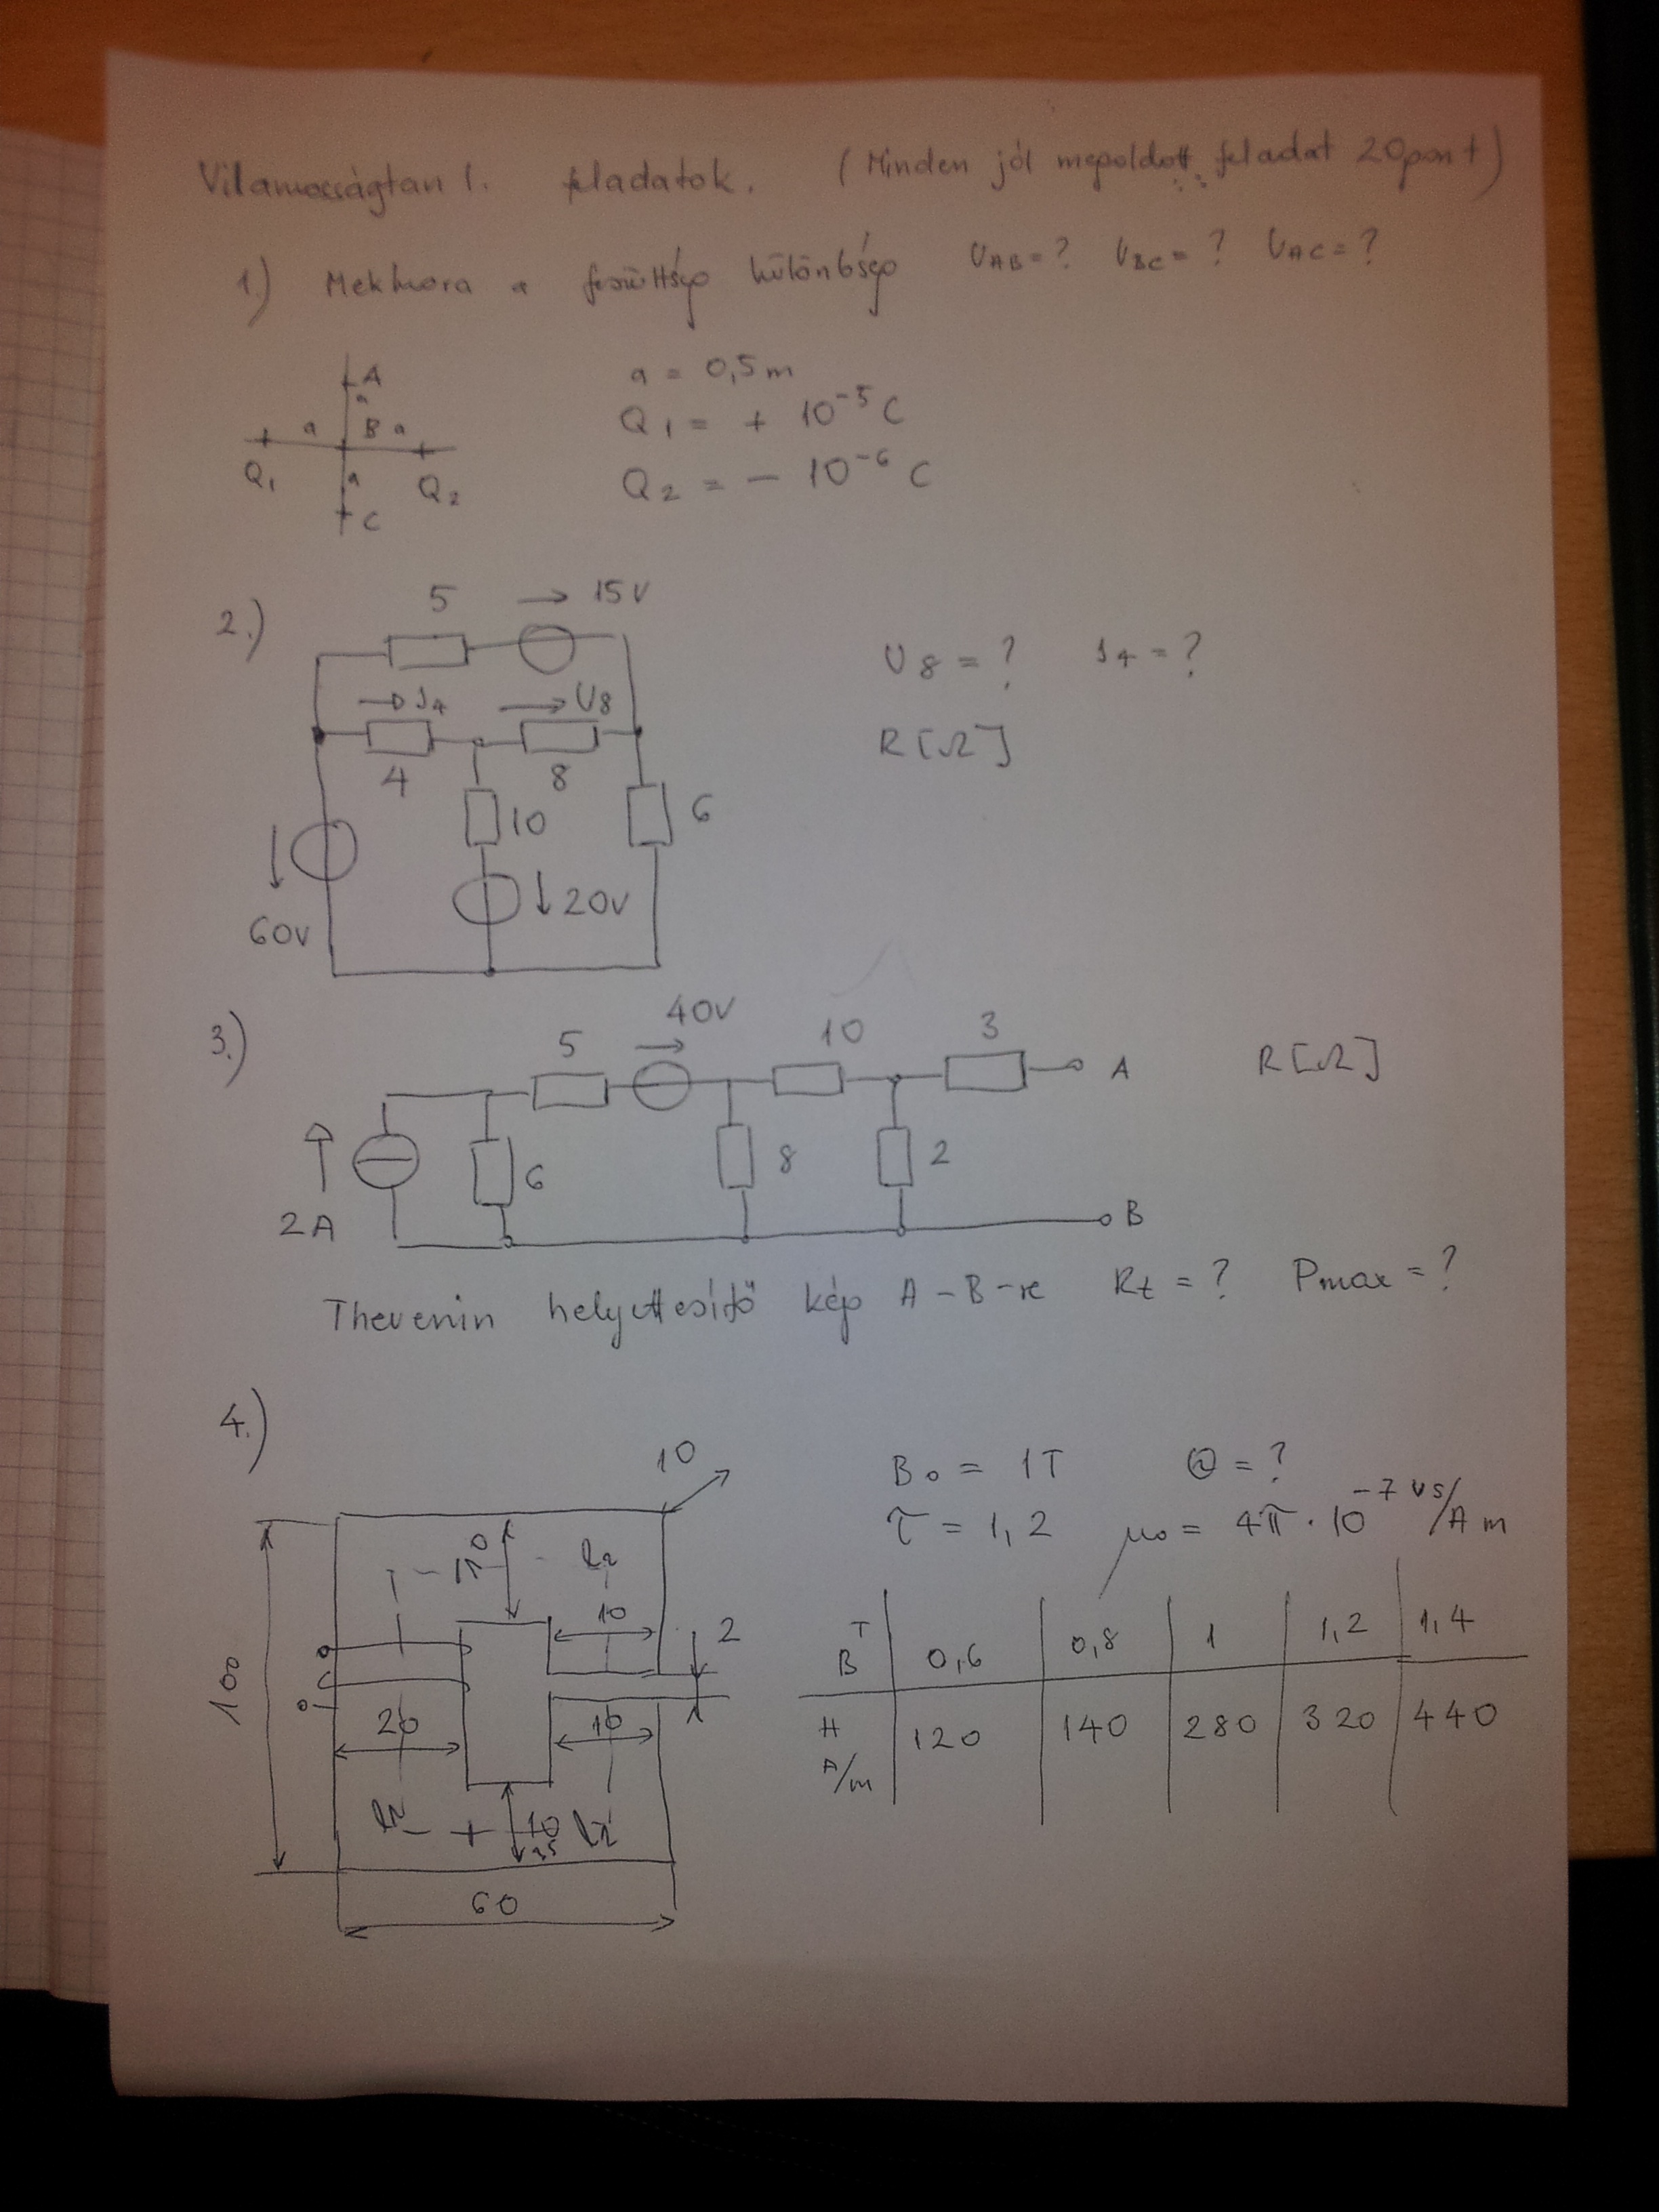 Villamosságtan 1. feladatok. (Minden jól megoldott feladat 20pont)
1.) Mekkora a feszültség különbség UAB=? UBC=? UAC=?
A
a
a B a
Q1 a Q2
C
a = 0,5m
Q1 = + 10^-5 C
Q2 = - 10^-6 C
2.)
5 → 15V
→ I4 → U8
4 8
10 6
↓ 60V
↓ 20V
U8 = ? I4 = ?
R[Ω]
3.)
5 40V 10 3 A
R[Ω]
2A 6 8 2 B
Thevenin helyettesítő kép A-B-re Rt = ? Pmax = ?
4.)
10
10
10
2
100
20 10
10
60
B0 = 1T Θ = ?
τ = 1,2 μ0 = 4π·10^-7 Vs/Am
B T 0,6 0,8 1 1,2 1,4
H A/m 120 140 280 320 440